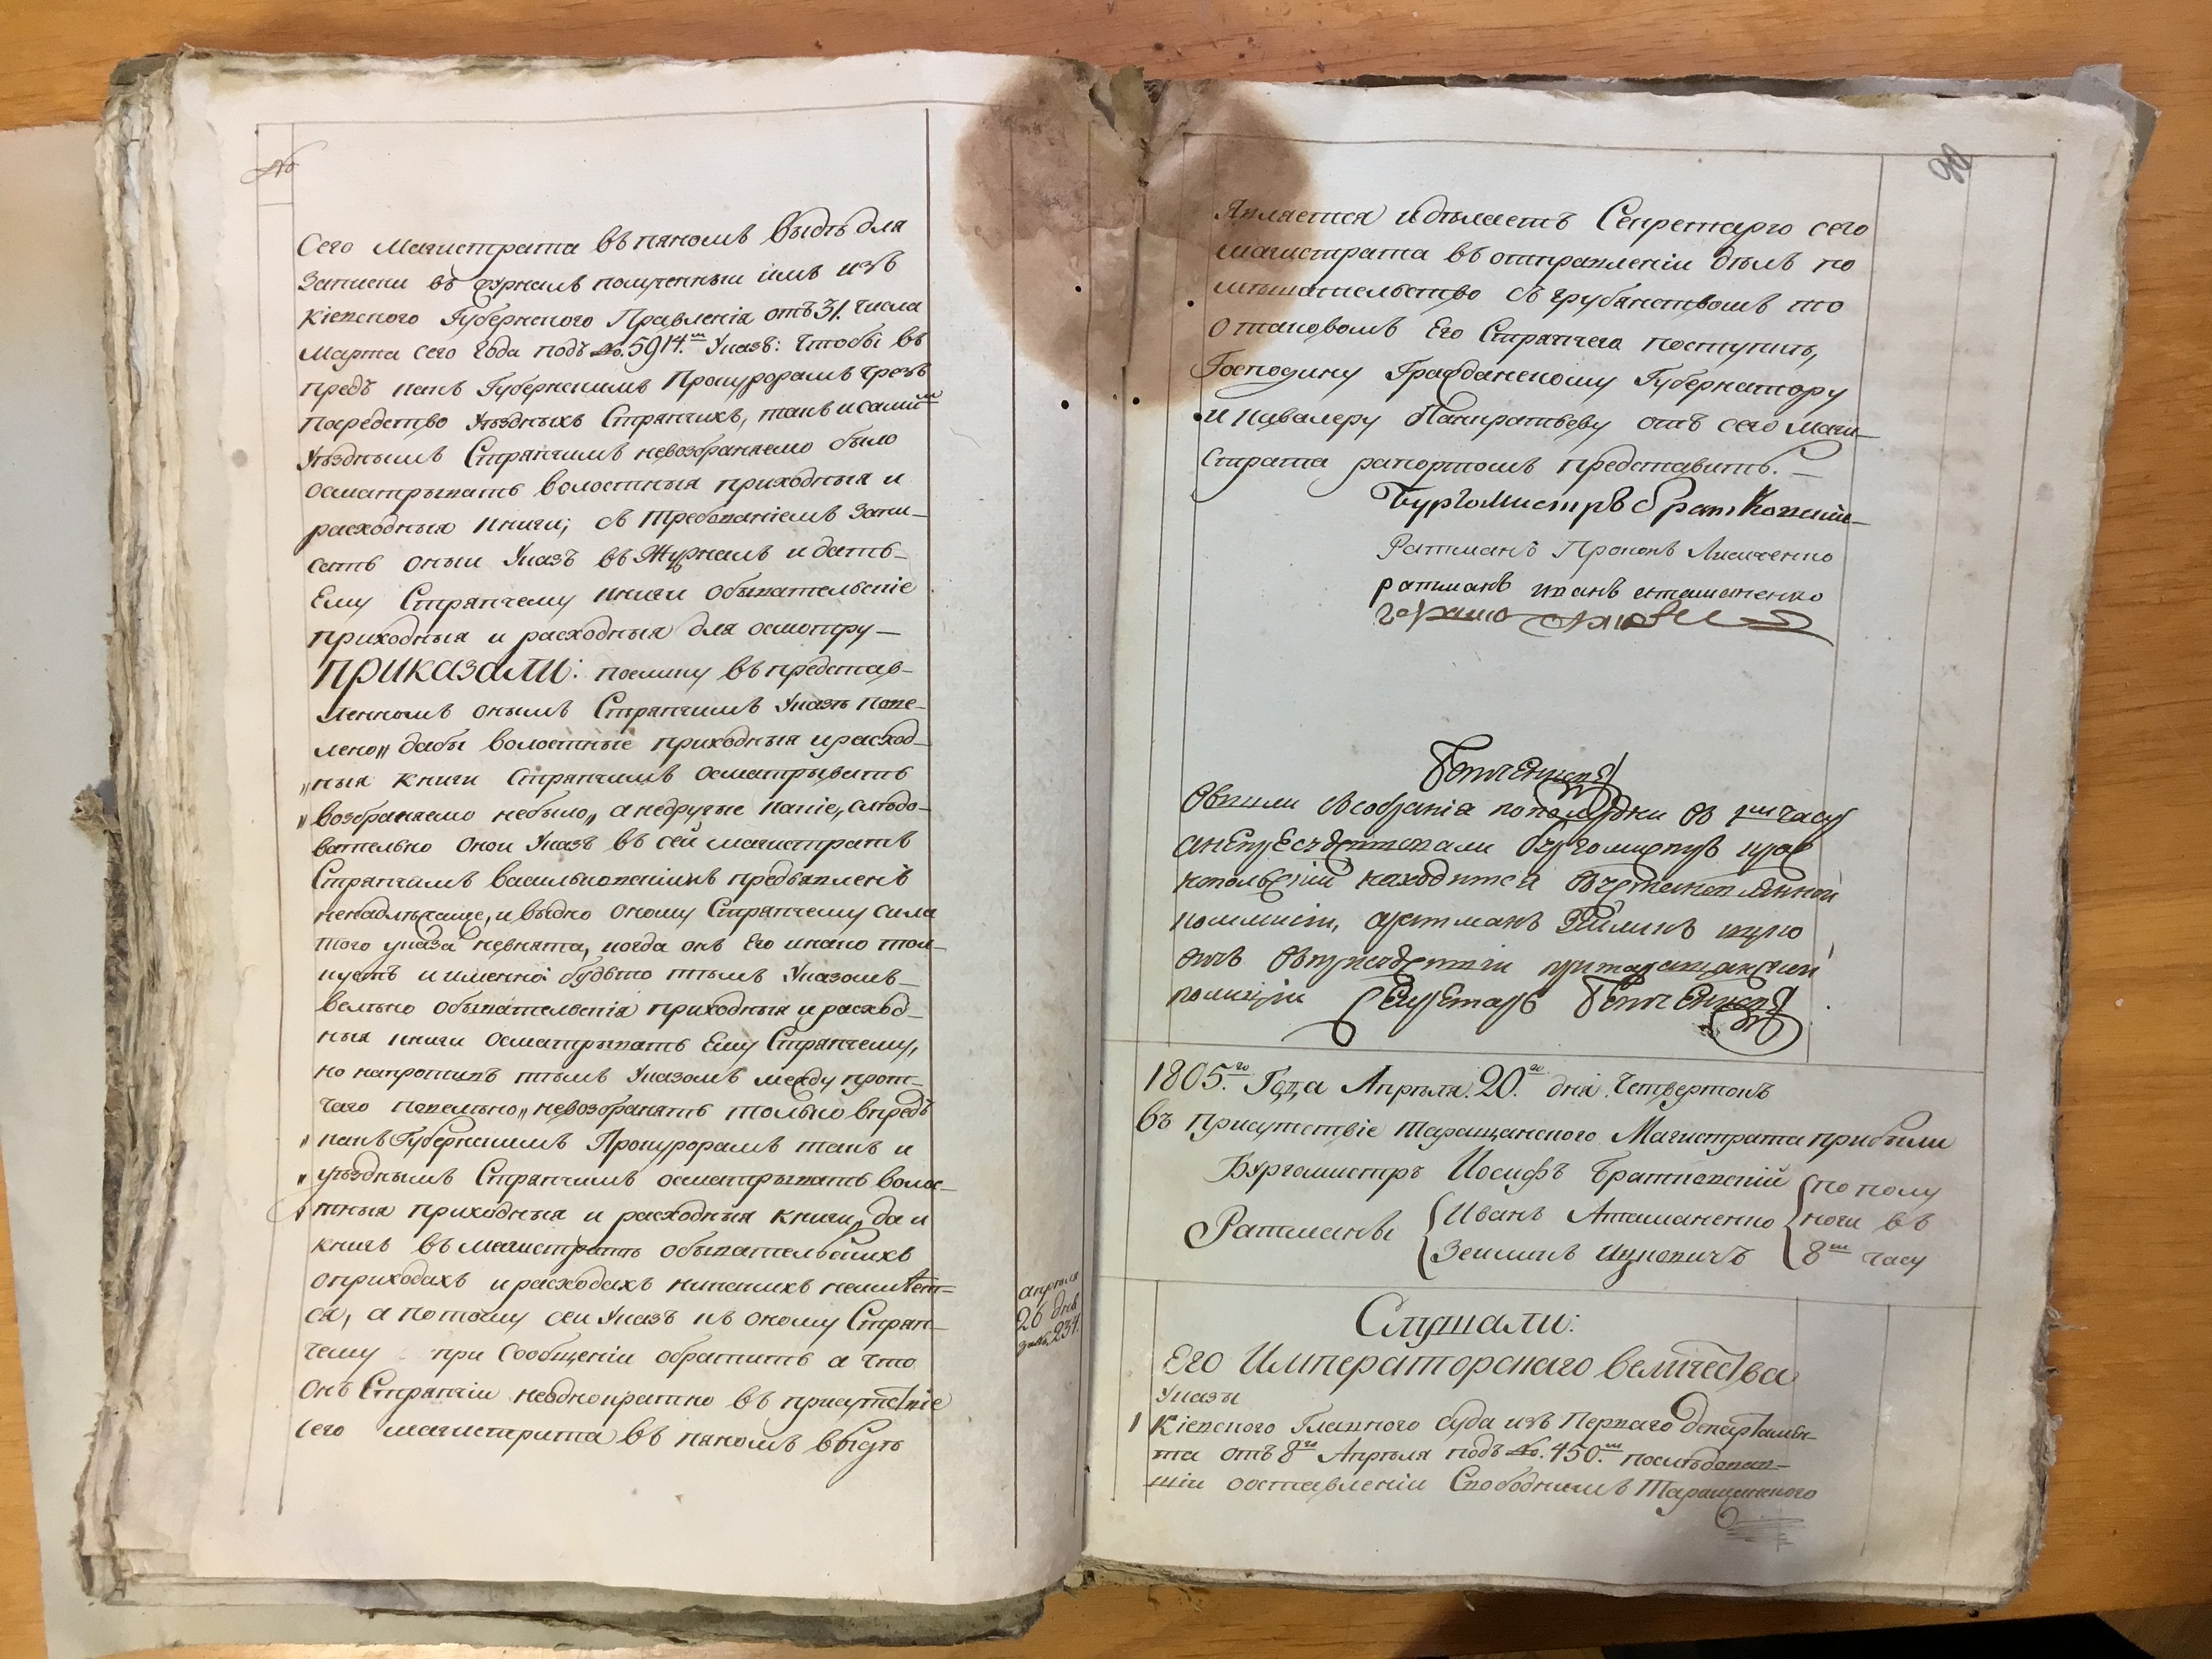 №
Сего Магистрата въ пяномъ видѣ для
Записки въ журналъ полученный имъ изъ
Кіевского Губернского Правленія отъ 31. числа
Марта сего года подъ №. 5914.мъ Указъ: чтобы въ
предь какъ Губернскимъ Прокурорамъ чрезъ
посредство Уѣздныхъ Стряпчихъ, такъ и самимъ
Уѣзднымъ Стряпчимъ невозбраняемо было
осматрывать волостныя приходныя и
расходныя книги; съ требованіемъ запи-
сать оный Указъ въ Журналъ и дать
Ему Стряпчему книги обывательскіе
приходныя и расходныя для осмотру —
приказали: поелику въ представ-
ленномъ онымъ Стряпчимъ Указѣ пове-
лено „ дабы волостные приходныя и расход-
„ ныя книги Стряпчимъ осматрывать
„ возбраняемо небыло „ а недругые какіе, слѣдо-
вательно оной Указъ въ сей магистратъ
Стряпчимъ Васильковскимъ предъявленъ
ненадлѣжаще, и видно оному Стряпчему сила
того указа невнята, когда онъ Его инако тол-
куетъ и именно: будьто тѣмъ Указомъ
велѣно обывательскія приходныя и расход-
ныя книги осматрывать Ему Стряпчему,
но напротивъ тѣмъ Указомъ между прот-
чаго повелѣно „ невозбранять только впредь
„ какъ Губернскимъ Прокурорамъ такъ и
„ уѣзднымъ Стряпчимъ осматрывать волос-
„ тныя приходныя и расходныя книги „ да и
книгъ въ магистратѣ обывательскихъ
оприходахъ и расходахъ никакихъ неимѣет-
ся, а потому сей Указъ къ оному Стряп-
чему при Сообщеніи обратить а что
онъ Стряпчій неоднократно въ присутствіе
сего магистрата въ пяномъ видѣ
апрѣля
26 дня
231.
90
Является и дѣлаетъ Секретарю сего
магистрата въ отправленіи дѣлъ по
мѣшательство съ грубянствомъ то
отаковомъ Его Стряпчего поступкѣ,
Господину Гражданскому Губернатору
и Кавалеру Панкратьеву отъ сего Маги-
страта рапортомъ представить. —
Бургомистръ Братковскій
Ратманъ Прокопъ Лисаченко
ратманъ иванъ аташаненко
по полудни въ часу
бургомистръ
находится
полиціи, ратманъ Зейлихъ
полиціи Секретарь
1805.го Года Апрѣля. 20.го дня. Четвертокъ
въ Присутствіе Таращанского Магистрата прибыли
Бургомистръ Иосифъ Братковскій по полу
Ратманы Иванъ Аташаненко ночи въ
Зейлихъ Ицковичъ 8мъ часу
Слушали:
Его Императорскаго величества
Указы
1 Кіевского Главного суда изъ Перваго департамѣн-
та отъ 8го Апрѣля подъ №. 450.мъ послѣдовав-
шій о оставленіи Свободнымъ Таращанского